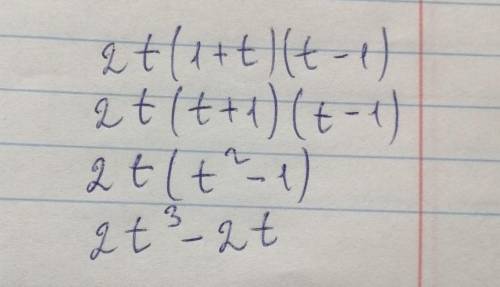 2t(1+t)(t-1)
2t(t+1)(t-1)
2t(t²-1)
2t³-2t